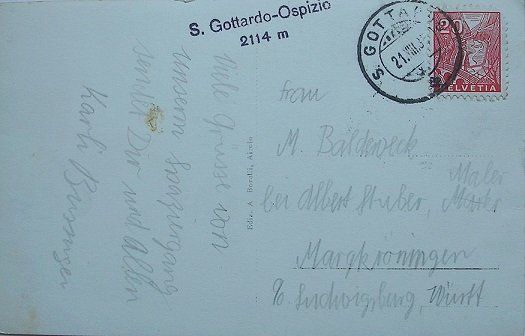 S. Gottardo-Ospizio
2114 m
S. GOTTA
21. VIII. 3
20
HELVETIA
Viele Grüsse von
unserem
sendet Dir und Allen
Karli
Ediz. A. Borelli, Airolo
Frau
M. Baldeweck
Maler
bei Albert Stuber, Maler
Margkröningen
b. Ludwigsburg, Württ